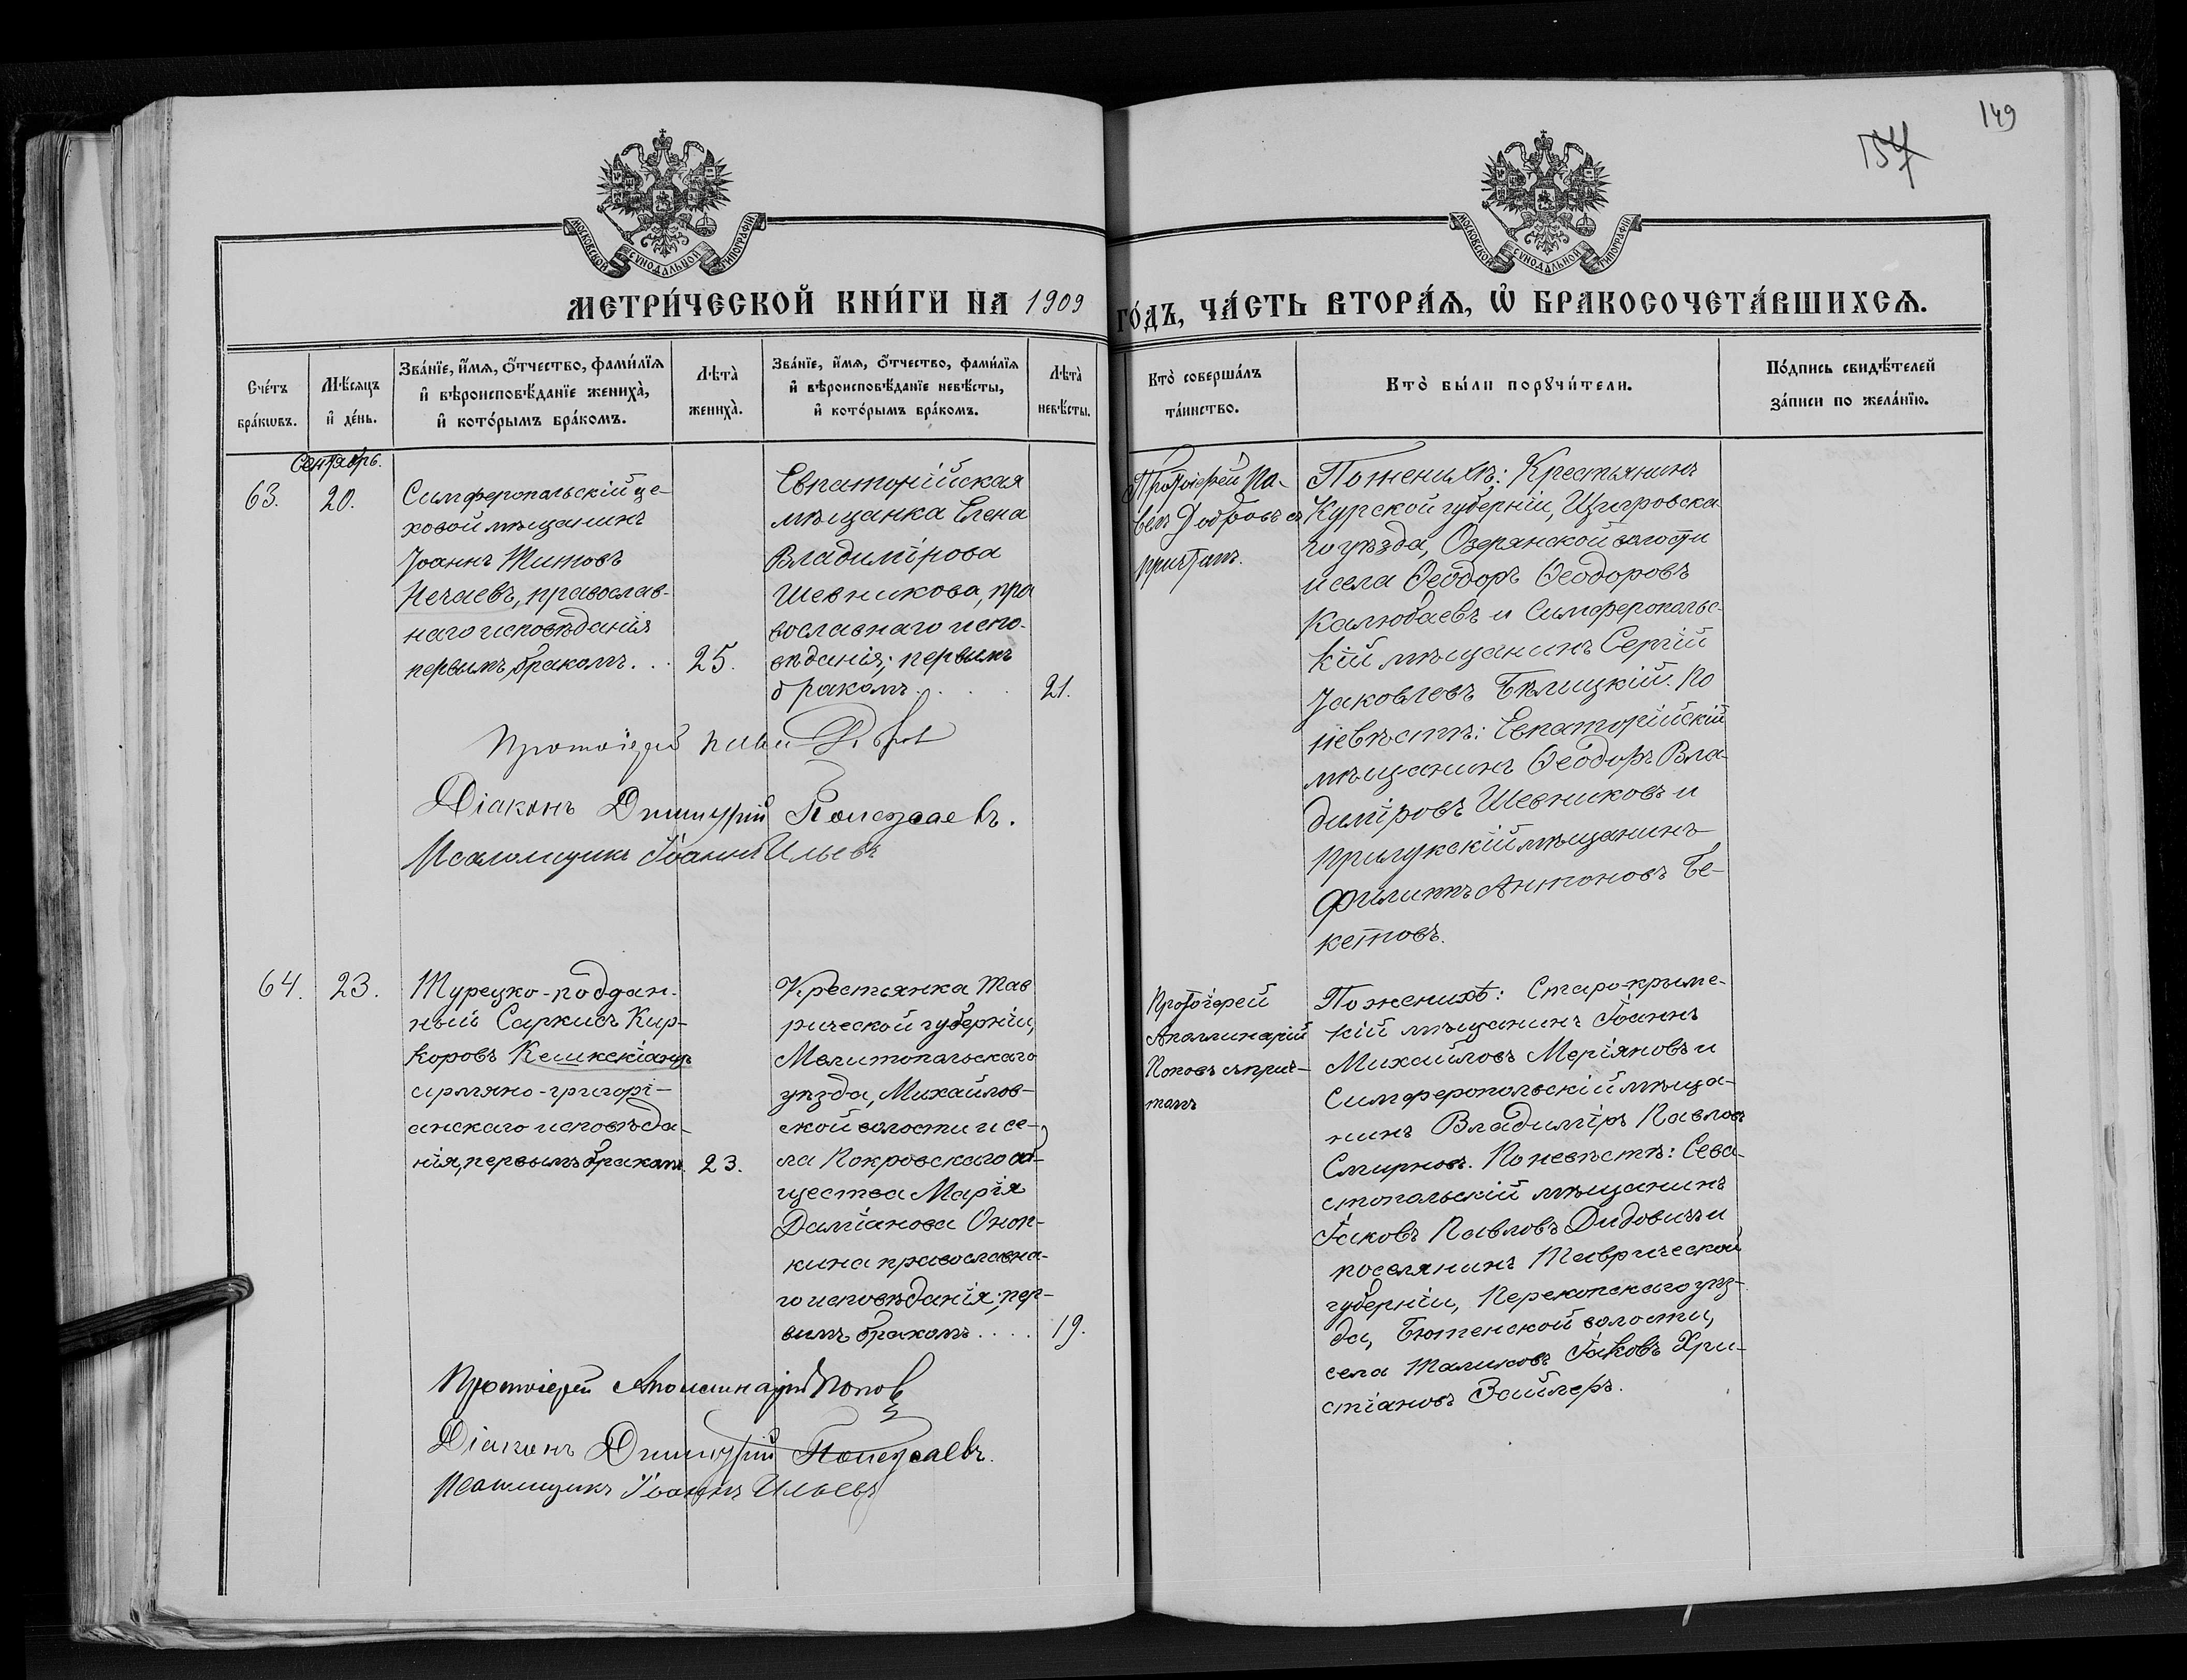 149
МОСКОВСКОЙ СѴНОДАЛЬНОЙ ТИПОГРАФІИ
МОСКОВСКОЙ СѴНОДАЛЬНОЙ ТИПОГРАФІИ
МЕТРИ́ЧЕСКОЙ КНИ́ГИ НА 1909
ГО́ДЪ, ЧА́СТЬ ВТОРА́Ѧ, Ѡ҆ БРАКОСОЧЕТА́ВШИХСѦ.
Сче́тъ
бра́кѡвъ.
Мѣ́сяцъ
и҆ де́нь.
Зва́нїе, и҆́мя, ѻ҆́тчество, фами́лїя
и҆ вѣроисповѣ́данїе жениха̀,
и҆ кото́рымъ бра́комъ.
Лѣта̀
жениха̀.
Зва́нїе, и҆́мя, ѻ҆́тчество, фами́лїя
и҆ вѣроисповѣ́данїе невѣ́сты,
и҆ кото́рымъ бра́комъ.
Лѣта̀
невѣ́сты.
Кто̀ соверша́лъ
та́инство.
Кто̀ бы́ли порꙋчи́тели.
По́дпись свидѣ́телей
за́писи по жела́нїю.
Сентябрь.
63.
20.
Симферопольскій це-
ховой мѣщанинъ
Іоаннъ Титовъ
Нечаевъ, православ-
наго исповѣданія
первымъ бракомъ. . .
25.
Евпаторійская
мѣщанка Елена
Владимірова
Шевникова, пра
вославнаго испо-
вѣданія; первымъ
бракомъ. . . .
21.
Протоіерей Па-
велъ Добровъ съ
причтомъ.
По женихѣ: Крестьянинъ
Курской губерніи, Щигровска-
го уѣзда, Озерянской волости
и села Ѳеодоръ Ѳеодоровъ
Калюбаевъ и Симферопольс-
кій мѣщанинъ Сергій
Іаковлевъ Бѣлицкій. По
невѣстѣ: Евпаторійскій
мѣщанинъ Ѳеодоръ Вла-
диміровъ Шевниковъ и
Прилукскій мѣщанинъ
Филиппъ Антоновъ Бе-
кетовъ.
Протоіерей Павел
Діаконъ Димитрій
Псаломщикъ Іоаннъ Ильевъ
64.
23.
Турецко-поддан-
ный Саркисъ Кир-
коровъ
армяно-григорі-
анскаго исповѣда-
нія, первымъ бракомъ.
23.
Крестьянка Тав
рической губерніи,
Мелитопольскаго
уѣзда, Михайлов-
ской волости и се-
ла Покровскаго об-
щества Марія
Даміанова Оноп-
кина православна-
го исповѣданія; пер-
вымъ бракомъ. . . .
19.
Протоіерей
Аполлинарій
Поповъ съ прич-
томъ
По женихѣ: Старо-крымс-
кій мѣщанинъ Іоаннъ
Михайловъ Меріяновъ и
Симферопольскій мѣща-
нинъ Владиміръ Павловъ
Смирновъ. По невѣстѣ: Сева-
стопольскій мѣщанинъ
Іаковъ Павловъ Дидовичъ и
поселянинъ Таврической
губерніи, Перекопскаго уѣз-
да, Бютенской волости,
села Іаковъ Хри-
стіановъ Зайлеръ.
Протоіерей Аполлинарій Попов
Діаконъ Димитрій
Псаломщикъ Іоаннъ Ильевъ